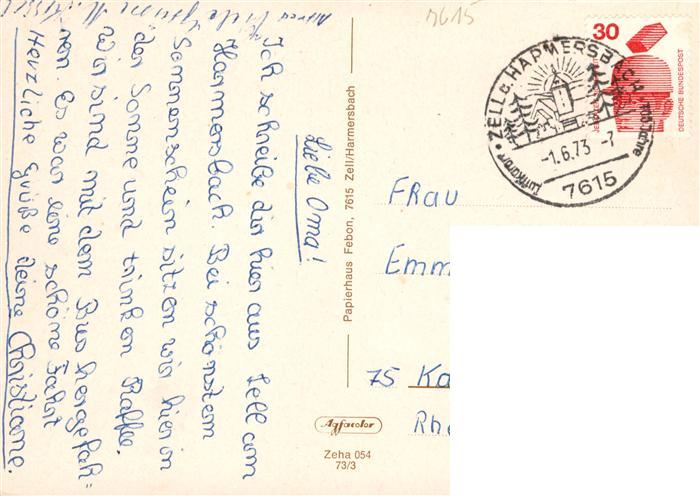 Liebe Oma!
Ich schreibe dir hier aus Zell am
Harmersbach. Bei schönstem
Sonnenschein sitzen wir hier in
der Sonne und trinken Kaffee.
Wir sind mit dem Bus hergefah=
ren. Es war eine schöne Fahrt
Herzliche Grüße deine Christiane.
viele Grüße
Papierhaus Febon, 7615 Zell/Harmersbach
Agfacolor
Zeha 054
73/3
7615
30
DEUTSCHE BUNDESPOST
ZELL a. HARMERSBACH
Luftkurort
Jahre
-1.6.73 -7
7615
Frau
Emm
75 Ka
Rhe